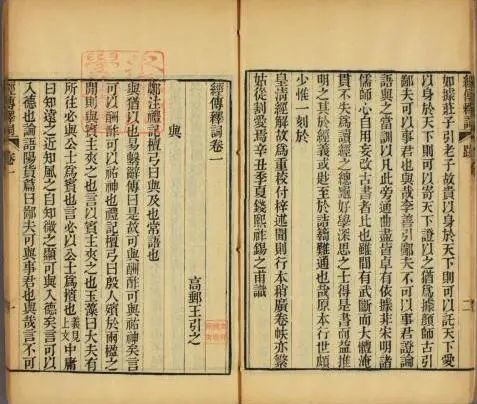 經傳釋詞 跋 二
如據莊子引老子故貴以身於天下則可以託天下愛
以身於天下則可以寄天下證以之猶爲據顏師古引
鄙夫不可以事君也與哉李善引鄙夫不可以事君證論
語與之當訓以凡此旁通曲盡皆卓有依據非宋明諸
儒師心自用妄改古書者比也雖間有武斷而大體淹
貫不失爲讀經之總龜好學深思之士得是書而益推
明之其於經義或尠至於詰難通也歲原本行世頗
少惟一刻於
皇清經解故爲重付梓述聞則行本稍廣卷帙亦繁
姑從割愛焉辛丑季夏錢熙祚錫之甫識
經傳釋詞卷一
高郵王引之
與
鄭注禮記檀弓曰與及也常語也
與猶以也易繫辭傳曰是故可與酬酢可與祐神矣言
可以酬酢可以祐神也禮記檀弓曰殷人殯於兩楹之
間則與賓主夾之也言以賓主夾之也玉藻曰大夫有
所往必與公士爲賓也言必以公士爲擯也義見上文中庸
曰知遠之近知風之自知微之顯可與入德矣言可以
入德也論語陽貨篇曰鄙夫可與事君也與哉言不可
經傳釋詞 卷一 一